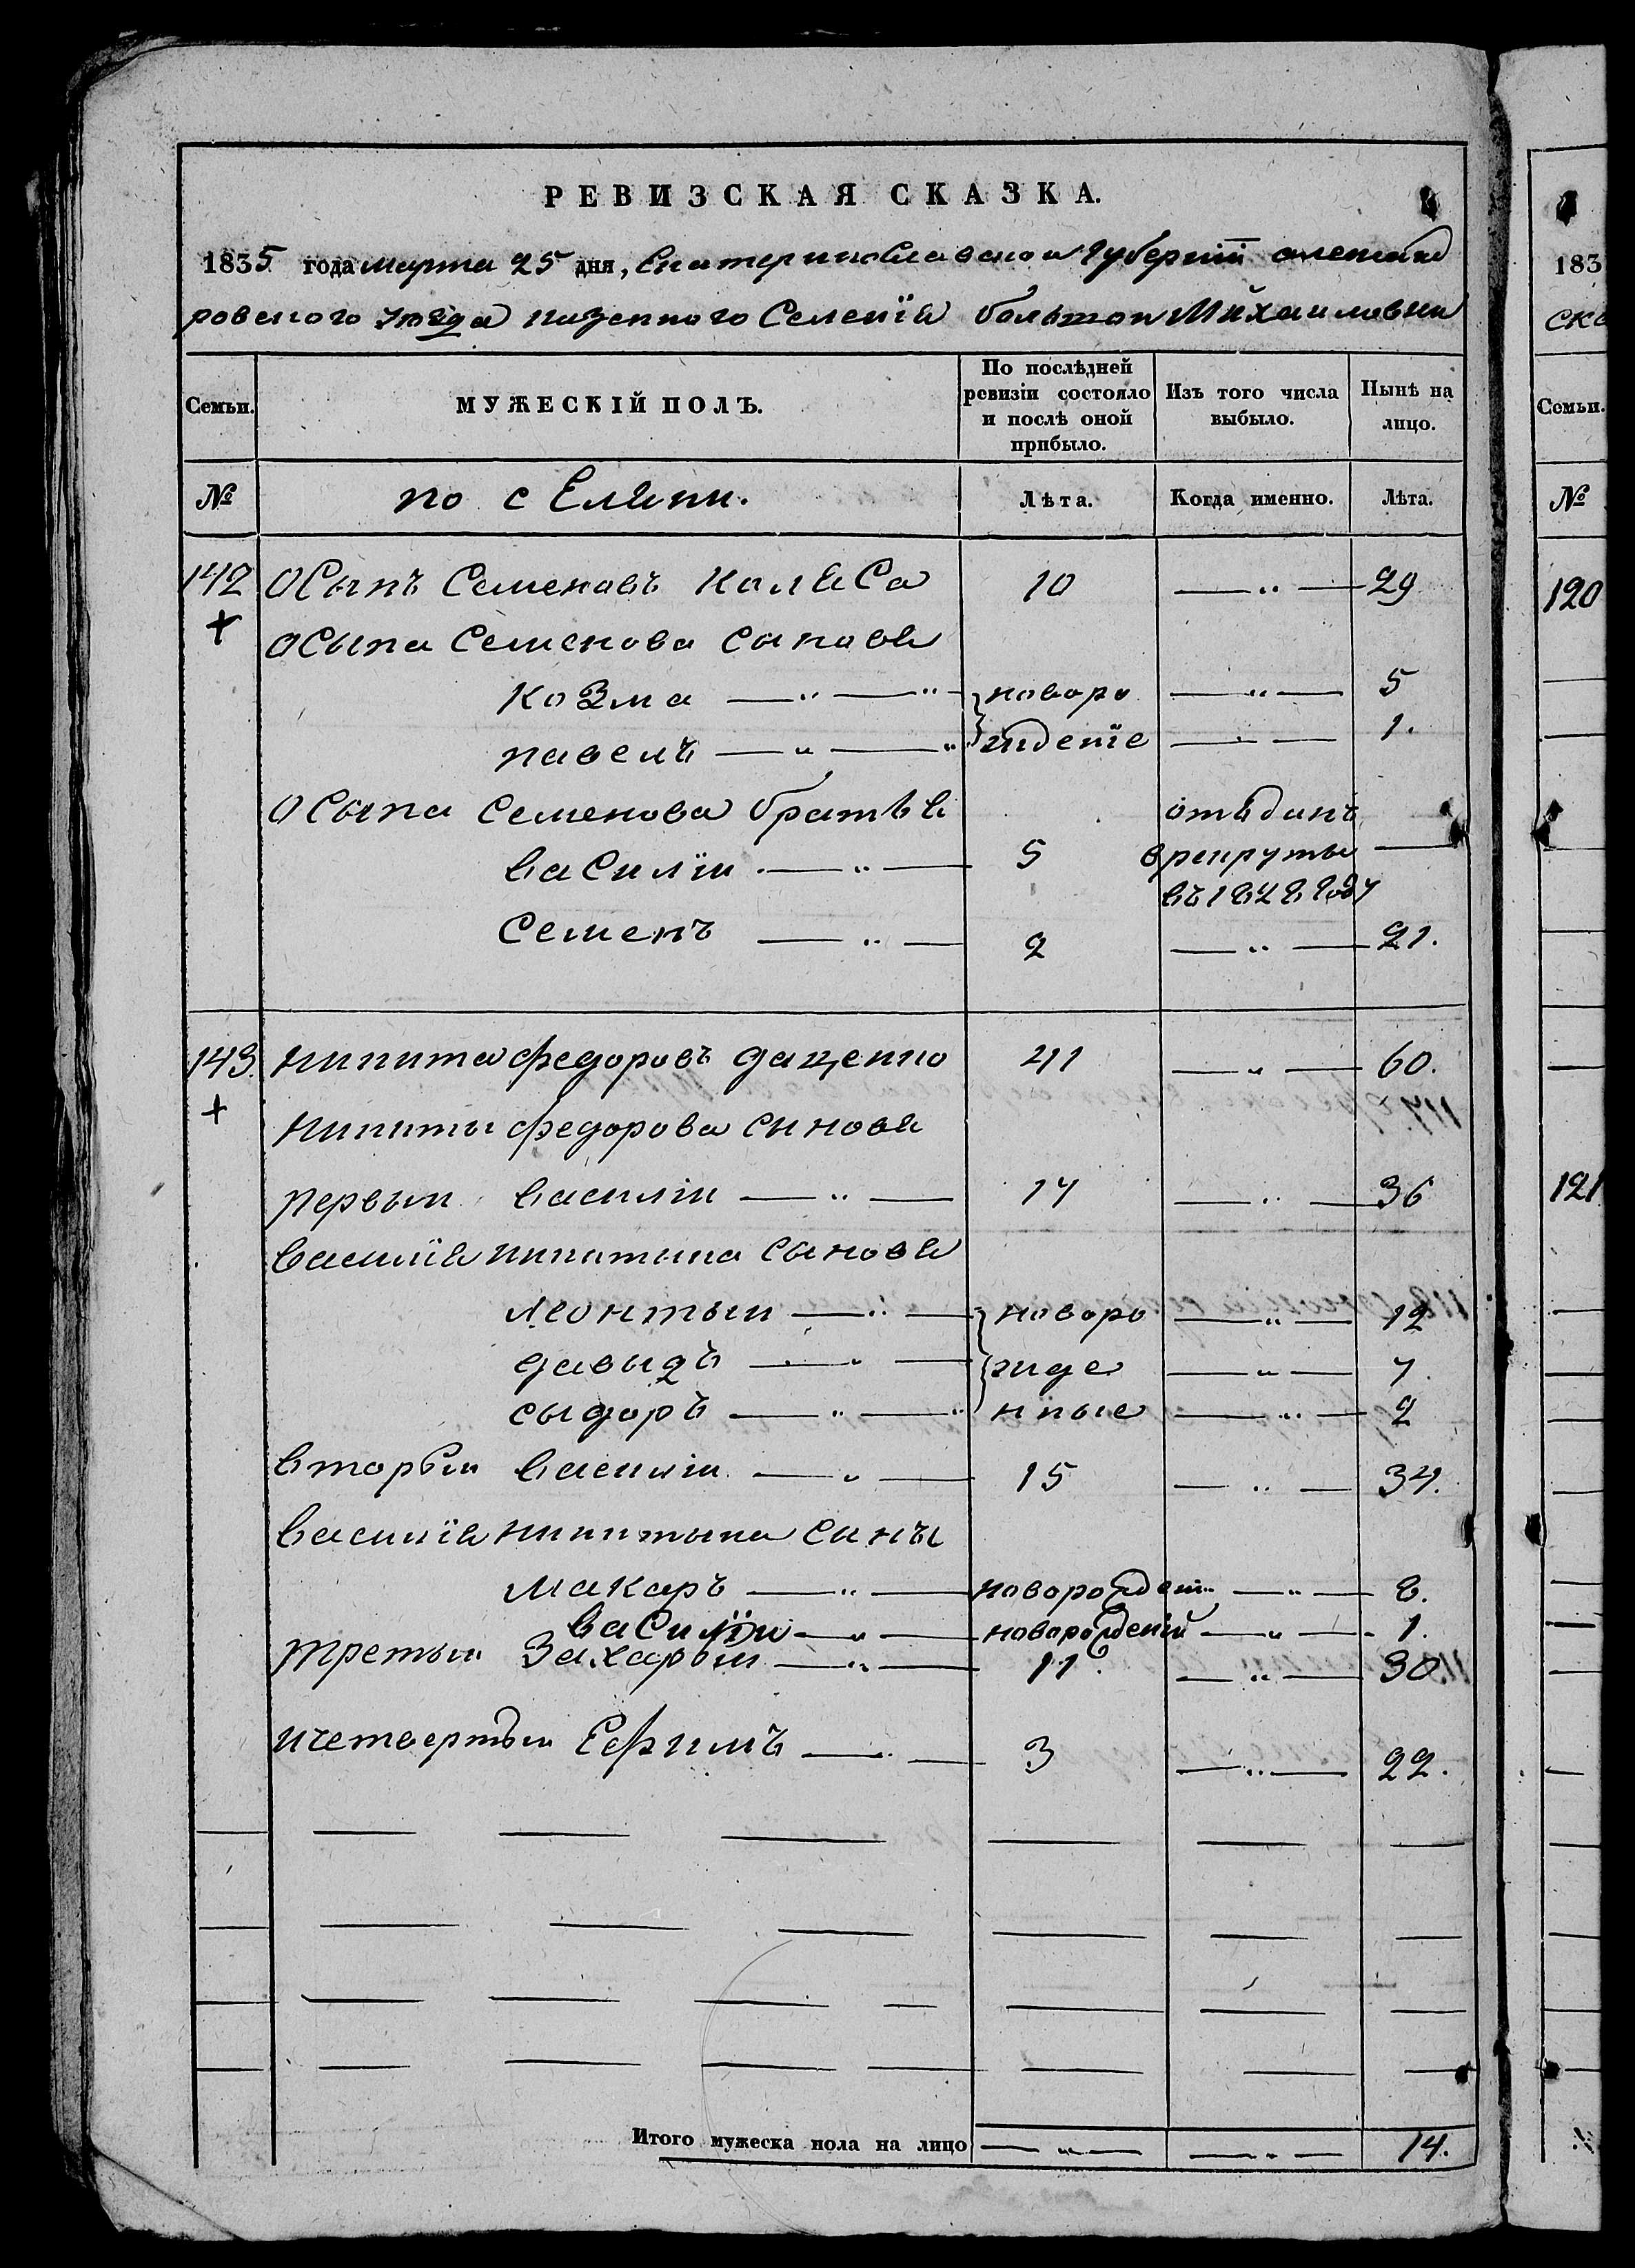 РЕВИЗСКАЯ СКАЗКА.
1835 года марта 25 дня, Екатеринославской Губернїи александ
ровского уезда казенного Селенїя большой Михайловки
Семьи. МУЖЕСКІЙ ПОЛЪ. По послѣдней ревизіи состояло и послѣ оной прибыло. Изъ того числа выбыло. Нынѣ на лицо.
№ Лѣта. Когда именно. Лѣта.
142 Осыпъ Семеновъ Колеса 10 — „ — 29
+ Осыпа Семенова сынове
Козма — „ — „ новоро — „ — 5
павелъ — „ — „ жденїе — „ — 1.
Осыпа Семенова братья отъданъ
Василїи — „ — 5 врекруты —
въ 1828 году
Семенъ — „ — 2 — „ — 21.
143. Никита федоровъ даценко 41 — „ — 60.
+ Никиты федорова сынове
первыи Василіи — „ — 17 — „ — 36
Василїя Никитина сынове
Леонтыи — „ — новоро — „ — 12
давыдъ — „ — жде — „ — 7.
сыдоръ — „ — „ нные — „ — 2
вторыи Василіи — „ — 15 — „ — 34.
Василїя Никитина сыны
Макаръ — „ — новорожден — „ — 8.
Василїи — „ — новорожденій — „ — 1.
третыи Захарыи — „ — 11. — „ — 30.
ичетвертыи Ефимъ — „ — 3 — „ — 22.
Итого мужеска пола на лицо — „ — — „ — 14.
183
ска
Семьи.
№
120
121